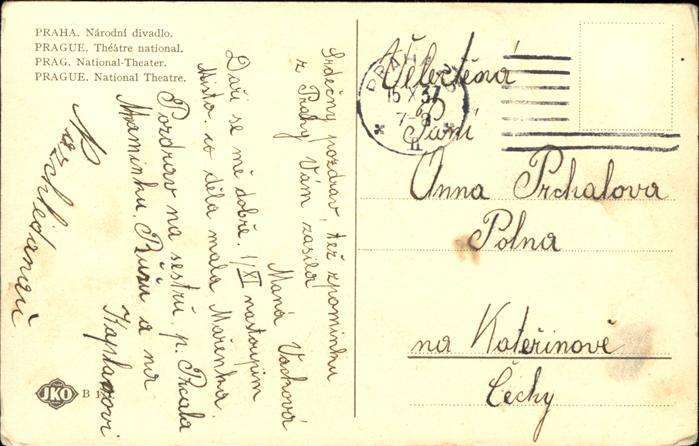 PRAHA. Národní divadlo.
PRAGUE. Théâtre national.
PRAG. National-Theater.
PRAGUE. National Theatre.
Srdečný pozdrav, též zpomínku
z Prahy Vám zasílá
Maná Vachová
Daří se mě dobře. 1/XI nastoupím
místo, co šla malá Mařenka
Pozdrav na sestru p.
Maminku, Růžu a na
Kaplanovi
Naschledanau
PRAHA
15 X 37
7-8
II
Velectěná
Paní
Anna Prchalova
Polna
na Kateřinově
Čechy
JKO
B